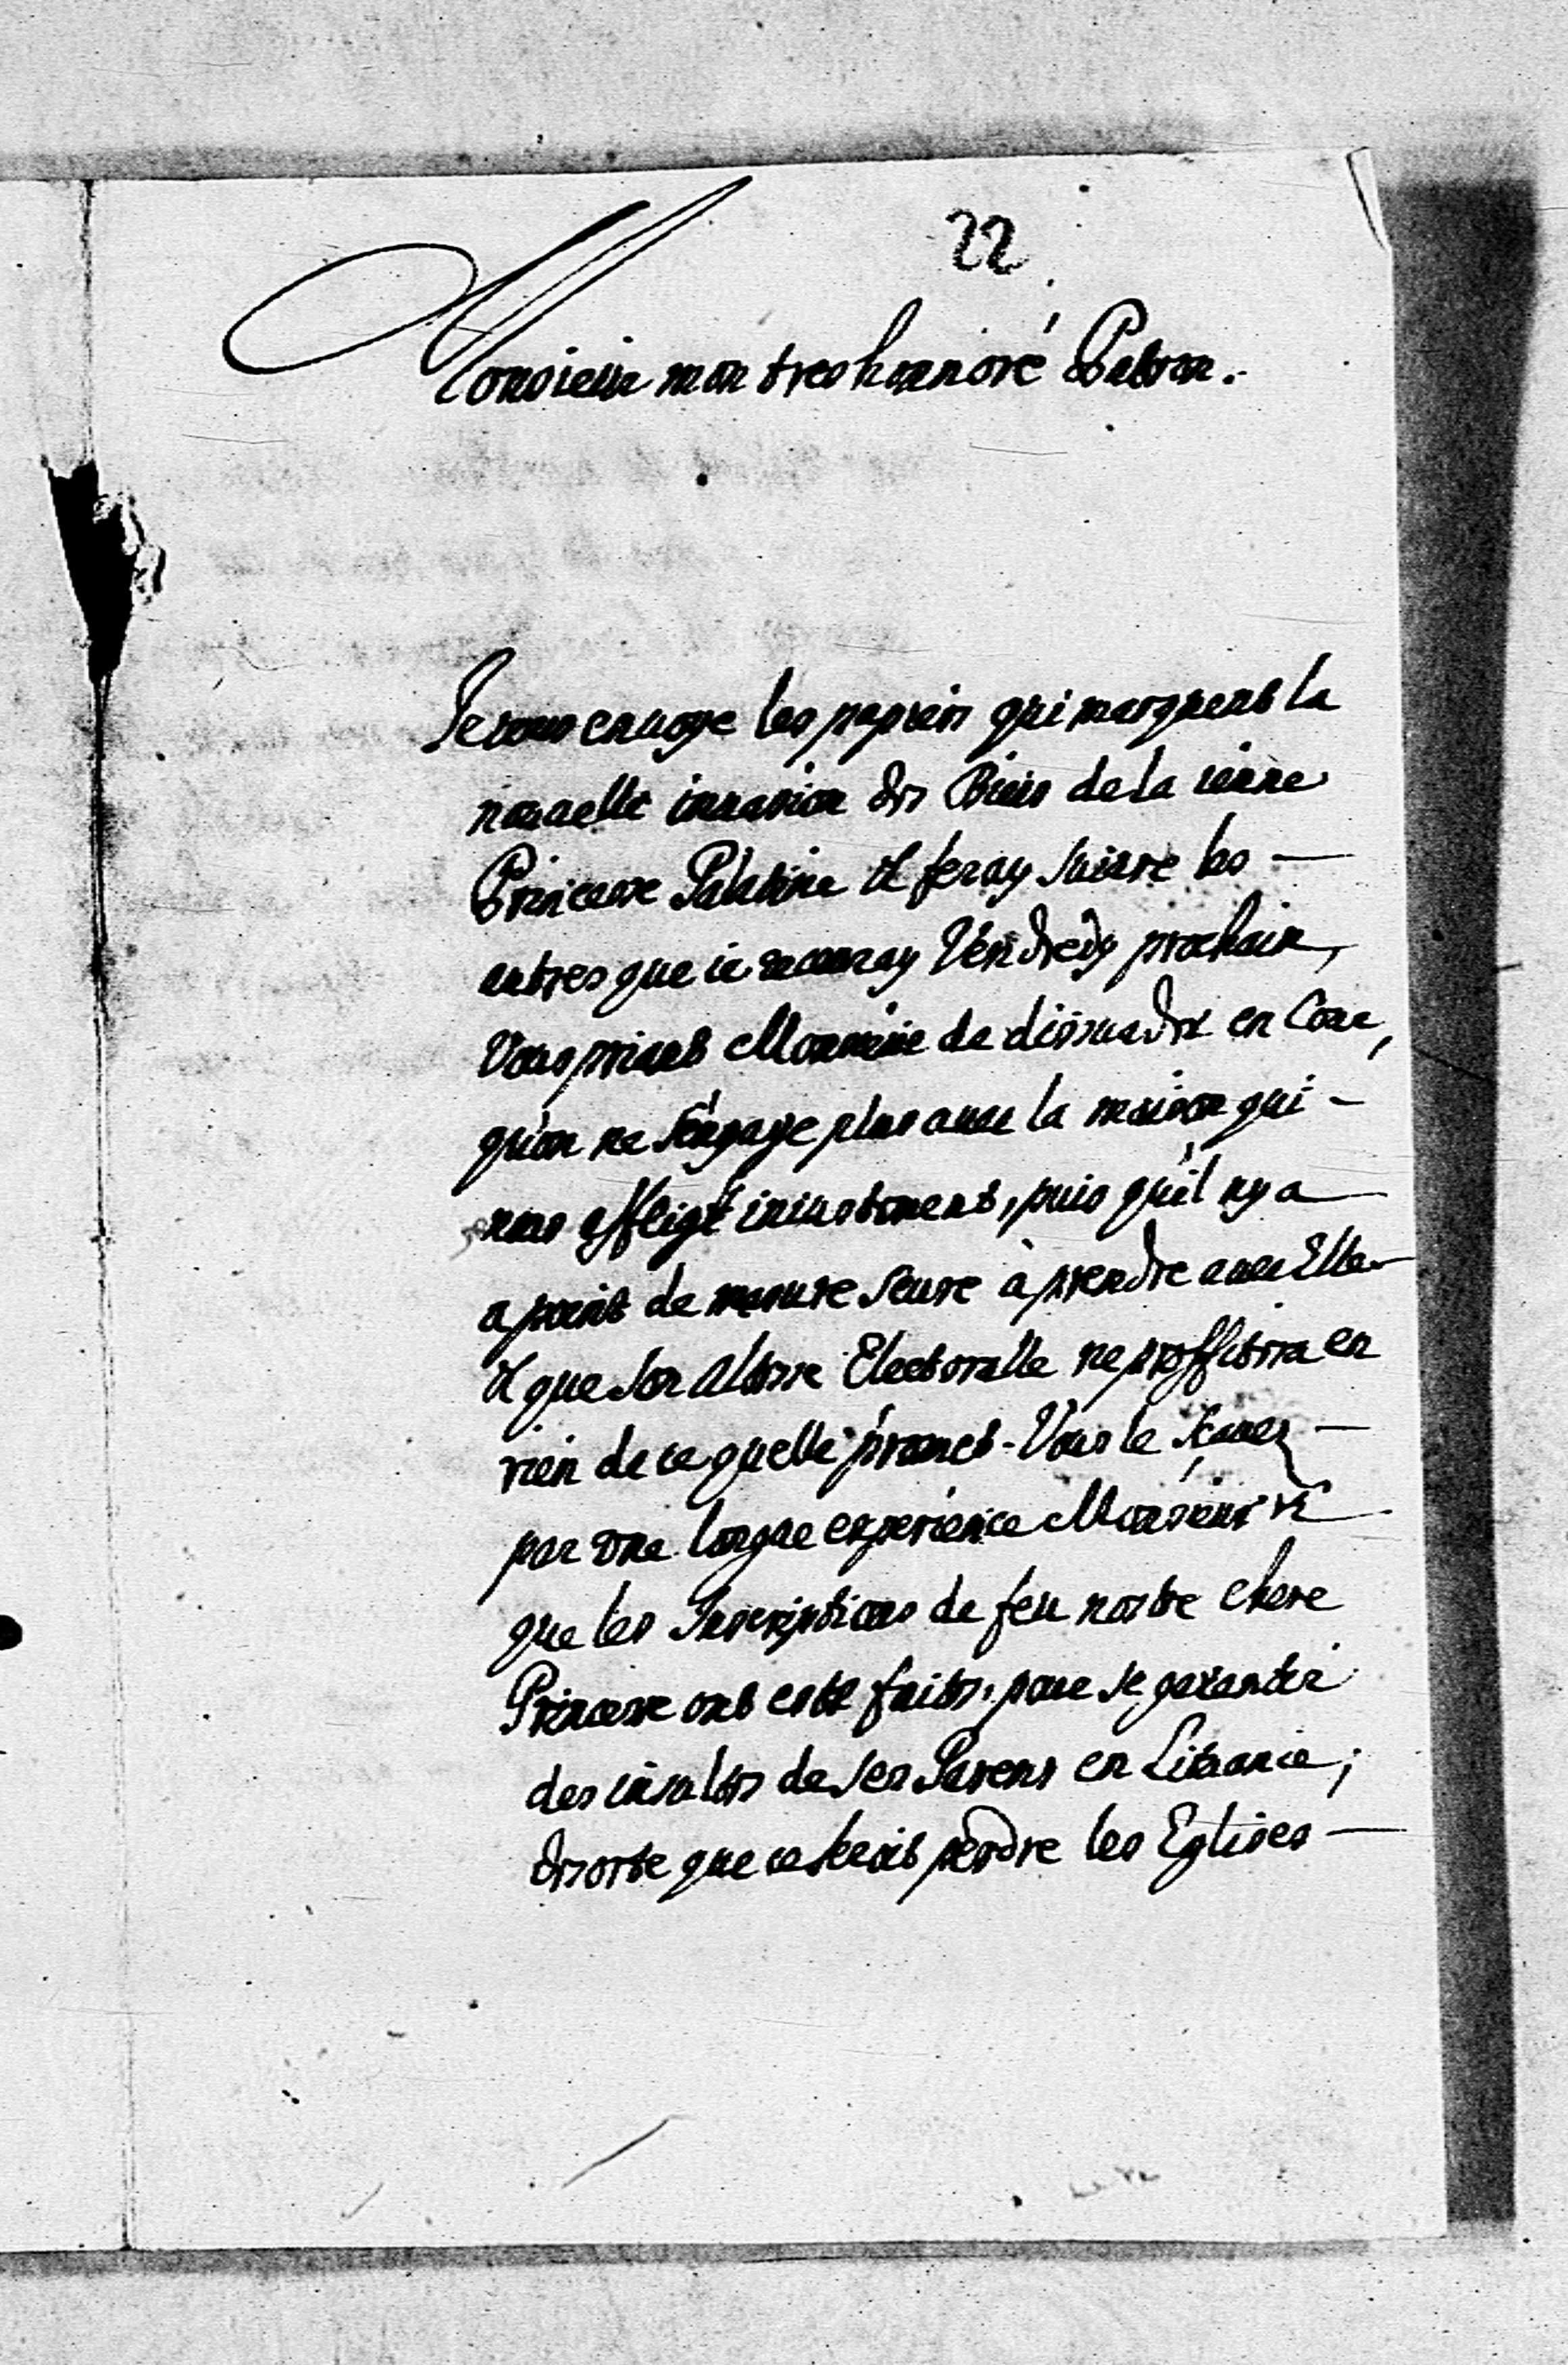 22
Monsieur mon treshonnoré Patron.
Je vous envoye les papiers qui marquent la
nouvelle invasion des Biens de la jeune
Princesse Palatine et feray suivre les —
autres que ie recevray Vendredy prochain,
Vous priant Monsieur de dissuader en Cour,
qu'on ne s'engage plus avec la maison qui —
nous afflige iniustement, puis qu'il ny a —
a point de mesure seure à prendre avec Elle —
et que son Altesse Electoralle ne proffitera en
rien de ce quelle promet. Vous le sçavez —
par vne longue experience Monsieur et —
que les Inscriptions de feu nostre chere
Princesse ont esté faites, pour se garantir
des insultes de ses Parens en Lituanie;
desorte que ce seroit perdre les Eglises —